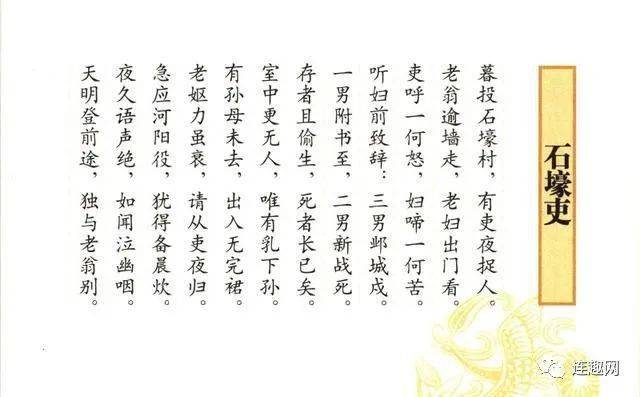 石壕吏
暮投石壕村，有吏夜捉人。
老翁逾墙走，老妇出门看。
吏呼一何怒，妇啼一何苦。
听妇前致辞：三男邺城戍。
一男附书至，二男新战死。
存者且偷生，死者长已矣。
室中更无人，唯有乳下孙。
有孙母未去，出入无完裙。
老妪力虽衰，请从吏夜归。
急应河阳役，犹得备晨炊。
夜久语声绝，如闻泣幽咽。
天明登前途，独与老翁别。
连趣网